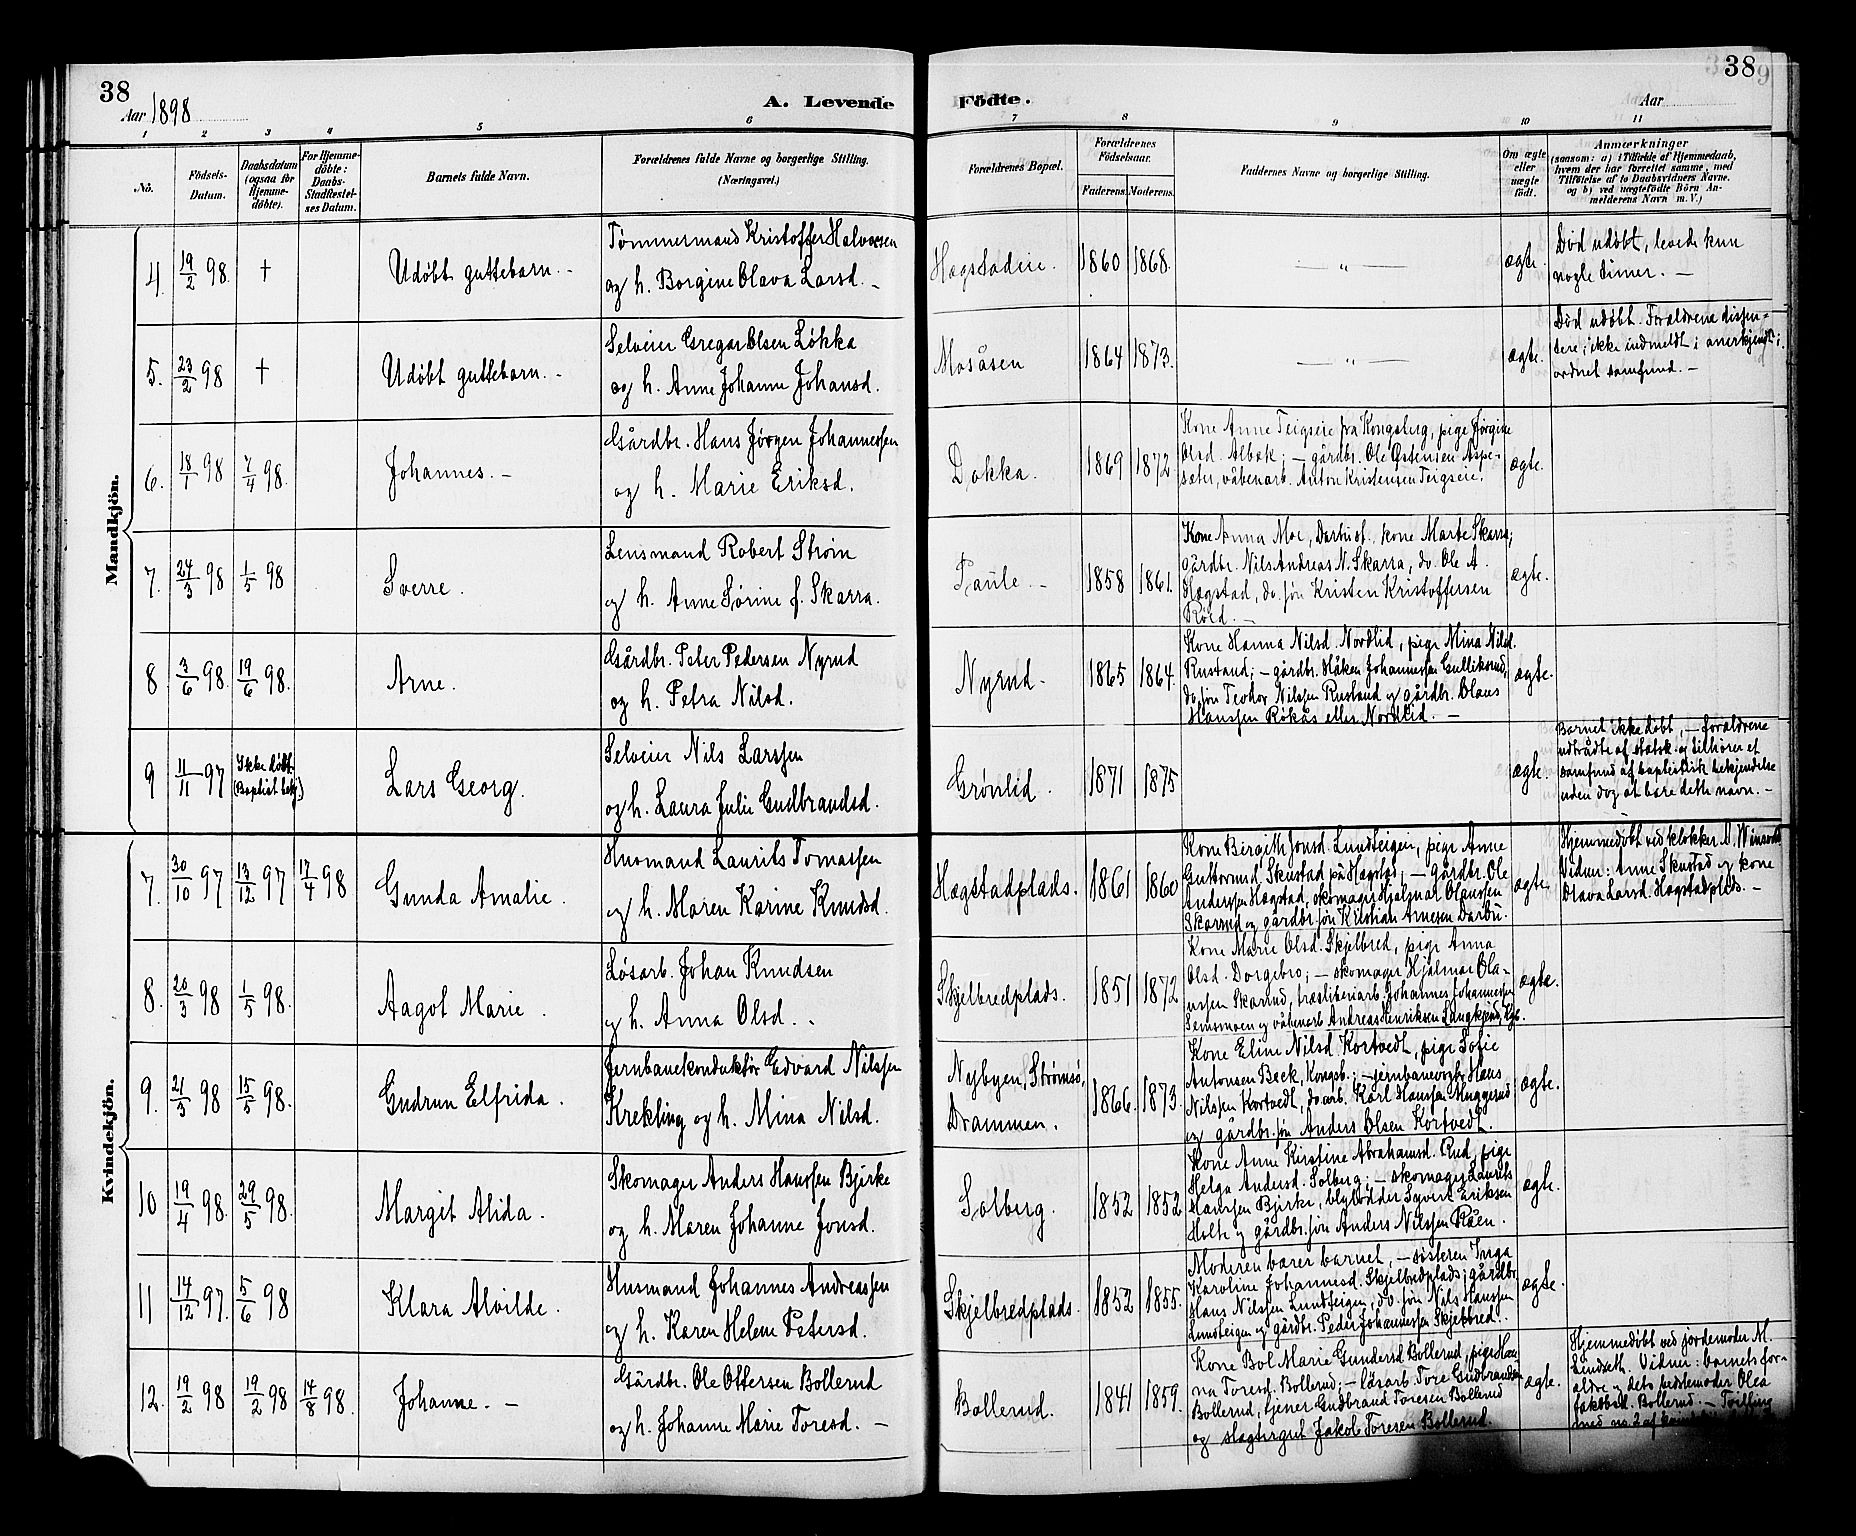 38
Aar 1898
A. Levende Födte.
Aar
38
1 2 3 4 5 6 7 8 9 10 11
No.
Födsels-Datum.
Daabsdatum (ogsaa for Hjemme-döbte).
For Hjemme-döbte: Daabs-Stadfæstel-ses Datum.
Barnets fulde Navn.
Forældrenes fulde Navne og borgerlige Stilling.
(Næringsvei.)
Forældrenes Bopæl.
Forældrenes Födselsaar.
Faderens. Moderens.
Faddernes Navne og borgerlige Stilling.
Om ægte eller uægte födt.
Anmærkninger
(saasom: a) i Tilfælde af Hjemmedaab,
hvem der har forrettet samme, med
Tilföielse af to Daabsvidners Navne.
og b) ved uægtefödte Börn An-
melderens Navn m. V.)
Mandkjön.
4. 19/2 98. † Udøbt guttebarn. -
Tømmermand Kristoffer Halvorsen
og h. Borgine Olava Larsd. -
Hagstadeie. 1860 1868. — „ — ægte.
Død udøbt, levede kun
nogle timer. -
5. 23/2 98 † Udøbt guttebarn. -
Selveier Gregar Olsen Løkka
og h. Anne Johanne Johansd.
Mosåsen 1864 1873. — „ — ægte.
Død udøbt. Forældrene dissen-
tere; ikke indmeldt i anerkjendt i
ordnet samfund. -
6. 18/1 98 7/4 98. Johannes. -
Gårdbr. Hans Jørgen Johannessen
og h. Marie Eriksd.
Dokka. 1869 1872
Kone Anne Teigseie fra Kongsberg, pige Jørgine
Olsd. Albæk; - gårdbr. Ole Østensen Aspe-
sæter, våbenarb. Anton Kristensen Teigseie.
ægte.
7. 24/3 98 1/5 98 Sverre.
Lensmand Robert Strøm
og h. Anne Sørine f. Skarra.
Paule. - 1858 1861.
Kone Anna Moe, Darbu st., kone Marte Skarra;
gårdbr. Nils Andreas N. Skarra, do. Ole A.
Hagstad, do. søn Kristen Kristoffersen
Røed. -
ægte.
8 3/6 98. 19/6 98. Arne.
Gårdbr. Peter Pedersen Nyrud
og h. Petra Nilsd.
Nyrud. 1865 1864.
Kone Hanna Nilsd. Nordlid, pige Mina Nilsd.
Rustand; - gårdbr. Håken Johannessen Gulliksrud,
do. søn Teodor Nilssen Rustand og gårdbr. Olaus
Hanssen Rökås eller Nordlid. -
ægte.
9 11/11 97 Ikke døbt (Baptist bekj.) Lars Georg.
Selveier Nils Larssen
og h. Laura Julie Gudbrandsd.
Grønlid. 1871 1875 ægte.
Barnet ikke døbt, - forældrene
udtrådte af statsk. og tilhører et
samfund af baptistisk bekjendelse
uden dog at bære dette navn. -
Kvindekjön.
7. 30/10 97 13/12 97 17/4 98 Gunda Amalie.
Husmand Laurits Tomassen
og h. Maren Karine Knudsd.
Hagstadplads. 1861 1860
Kone Birgith Jonsd. Lundteigen, pige Anne
Guttormsd. Skustad på Hagstad; - gårdbr. Ole
Anderssen Hagstad, skomager Hjalmar Olaussen
Skarrud og gårdbr. søn Kristian Arnesen Darbu.
ægte.
Hjemmedøbt ved klokker A.
Vidner: Anne Skustad og kone
Olava Larsd. Hagstadplads. -
8. 20/3 98 1/5 98. Aagot Marie.
Løsarb. Johan Knudsen
og h. Anna Olsd. -
Skjelbredplads. 1851 1872
Kone Marie Olsd. Skjelbred, pige Anna
Olsd. Dorgebro; - skomager Hjalmar Ola-
ussen Skarrud, træsliberiarb. Johannes Johannessen
Semsmoen og våbenarb. Andreas Henriksen Langkjend, Kgb.
ægte.
9. 21/3 98 15/5 98. Gudrun Elfrida.
Jernbanekonduktør Edvard Nilssen
Krekling og h. Mina Nilsd.
Nybyen, Strømsø, Drammen. 1866. 1873.
Kone Eline Nilsd. Kortvedt, pige Sofie
Antonsen Bæck, Kongsb.; - jernbanevogter Hans
Nilssen Kortvedt, do. arb. Karl Hanssen Muggerud
og gårdbr. søn Anders Olsen Kortvedt.
ægte.
10 19/4 98. 29/5 98. Margit Alida.
Skomager Anders Hanssen Bjerke
og h. Maren Johanne Jonsd.
Solberg. 1852 1852
Kone Anne Kirstine Abrahamsd. Rud, pige
Helga Andersd. Solberg; - skomager Laurits
Hanssen Bjerke, Syvert Eriksen
Holte og gårdbr. søn Anders Nilssen Råen.
ægte.
11 14/12 97. 5/6 98 Klara Alvilde.
Husmand Johannes Andreassen
og h. Karen Helene Petersd.
Skjelbredplads. 1852 1855.
Moderen bærer barnet, - søsteren Inga
Karoline Johannesd. Skjelbredplads; gårdbr.
Hans Nilssen Lundteigen, do. søn Nils Hanssen
Lundteigen og gårdbr. Peder Johannessen Skjelbred.
ægte.
12. 19/2 98 19/2 98 14/8 98. Johanne. -
Gårdbr. Ole Ottersen Bollerud
og h. Johanne Marie Toresd. -
Bollerud. 1841 1859.
Kone Bol Marie Gundersd. Bollerud, pige Han
na Toresd. Bollerud; - løsarb. Tore Gudbrandsen
Bollerud, tjener Gudbrand Toresen Bollerud
og slagtergut Jakob Toresen Bollerud.
ægte.
Hjemmedøbt ved jordemoder M.
Vidner: barnets for-
ældre og dets bedstemoder Olea
Jakobsd. Bollerud. - Tvilling
med no. 2 af